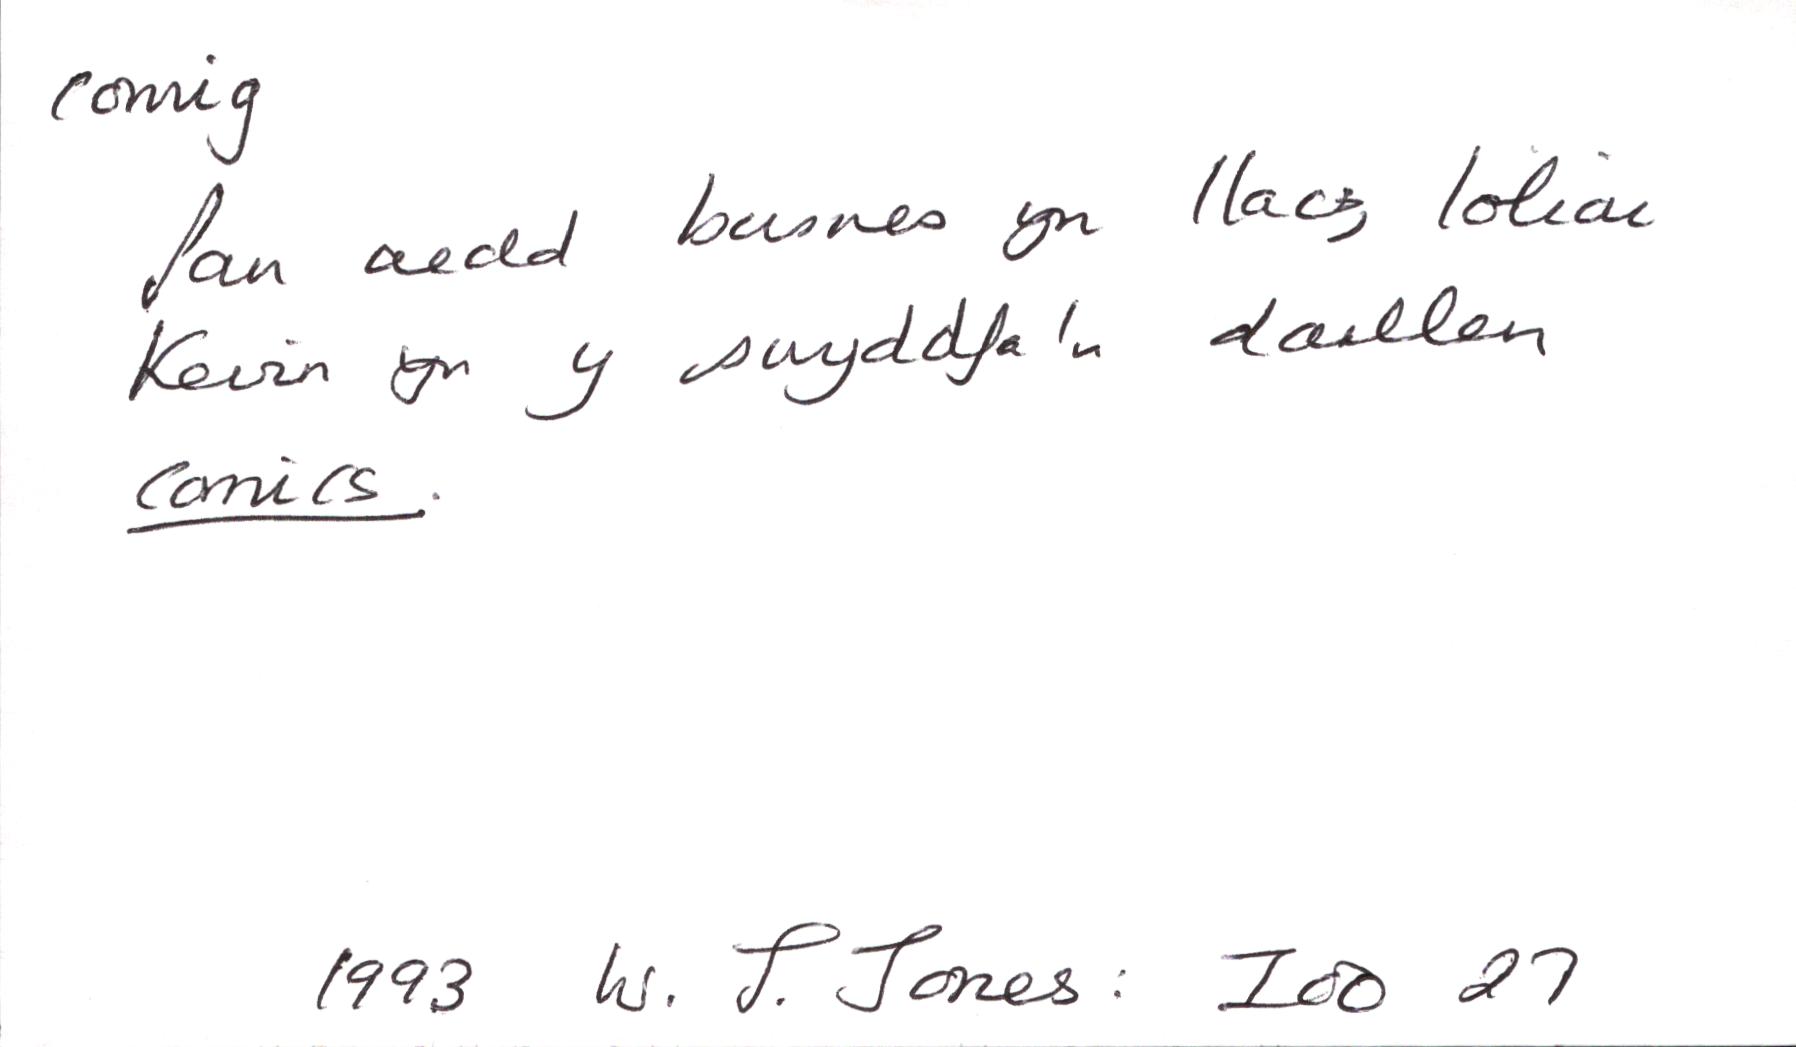 comig
Pan aedd busnes yn llac, loliai
Kevin yn y swyddfa'n darllen
comics.
1993 W. J. Jones: IOO 27